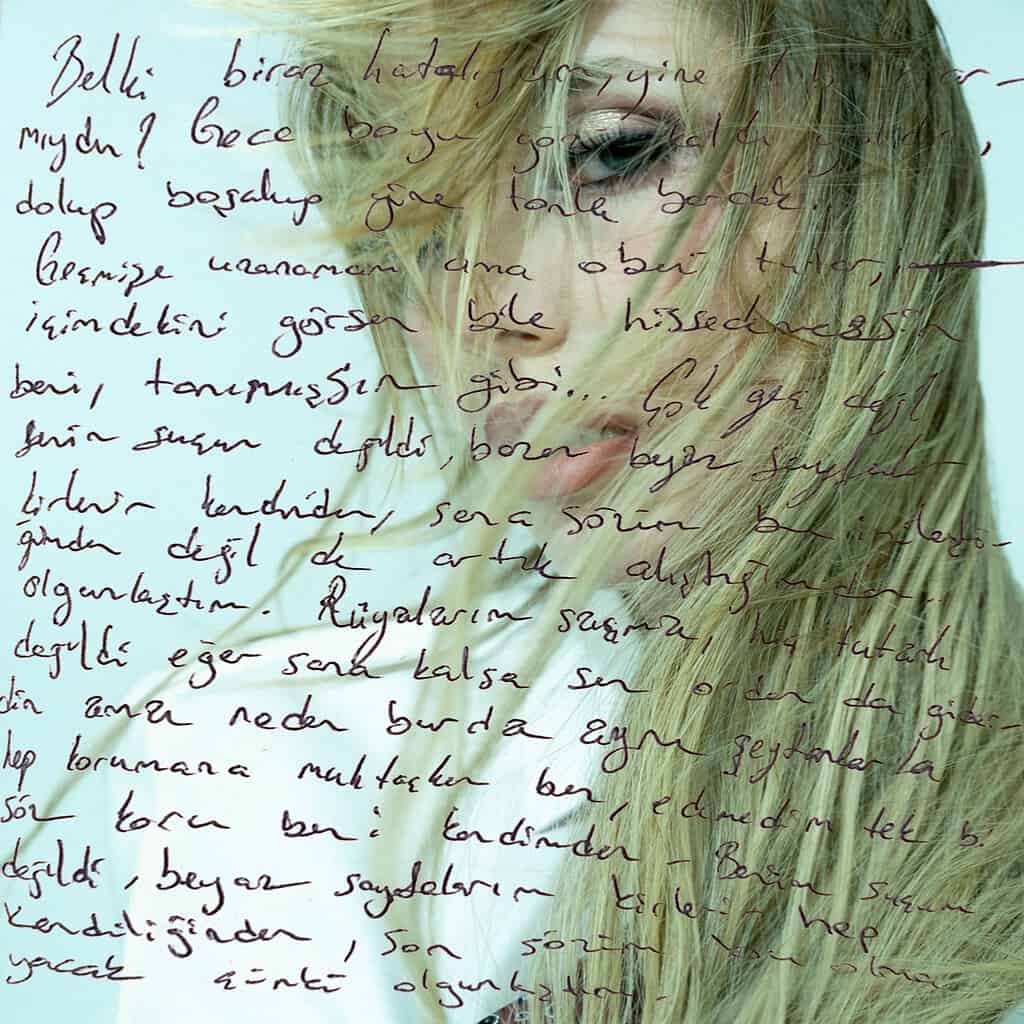 Belki biraz hatalıydım, yine
mıydın? Gece boyu
dolup boşalıp yine bardak.
Geçmişe uzanamam ama tutar,
içimdekini görsen bile hissedemezsin
beni, tanımışsın gibi... Çok geç değil
senin suçun değildi, bazen beyaz sayfalar
kirlenir kendinden, sana sözüm ben iyileşti-
ğimden değil de artık alıştığımdan..
olgunlaştım. Rüyalarım saçma, hiç tutarlı
değildi eğer sana kalsa sen ordan da gider-
din ama neden burda aynı şeytanlarla
hep korumana muhtaçken ben, edemedim tek bi
söz koru beni kendimden - Benim suçum
değildi, beyaz sayfalarım kirlenir hep
kendiliğinden, son sözüm olma
yacak çünkü olgunlaştım.